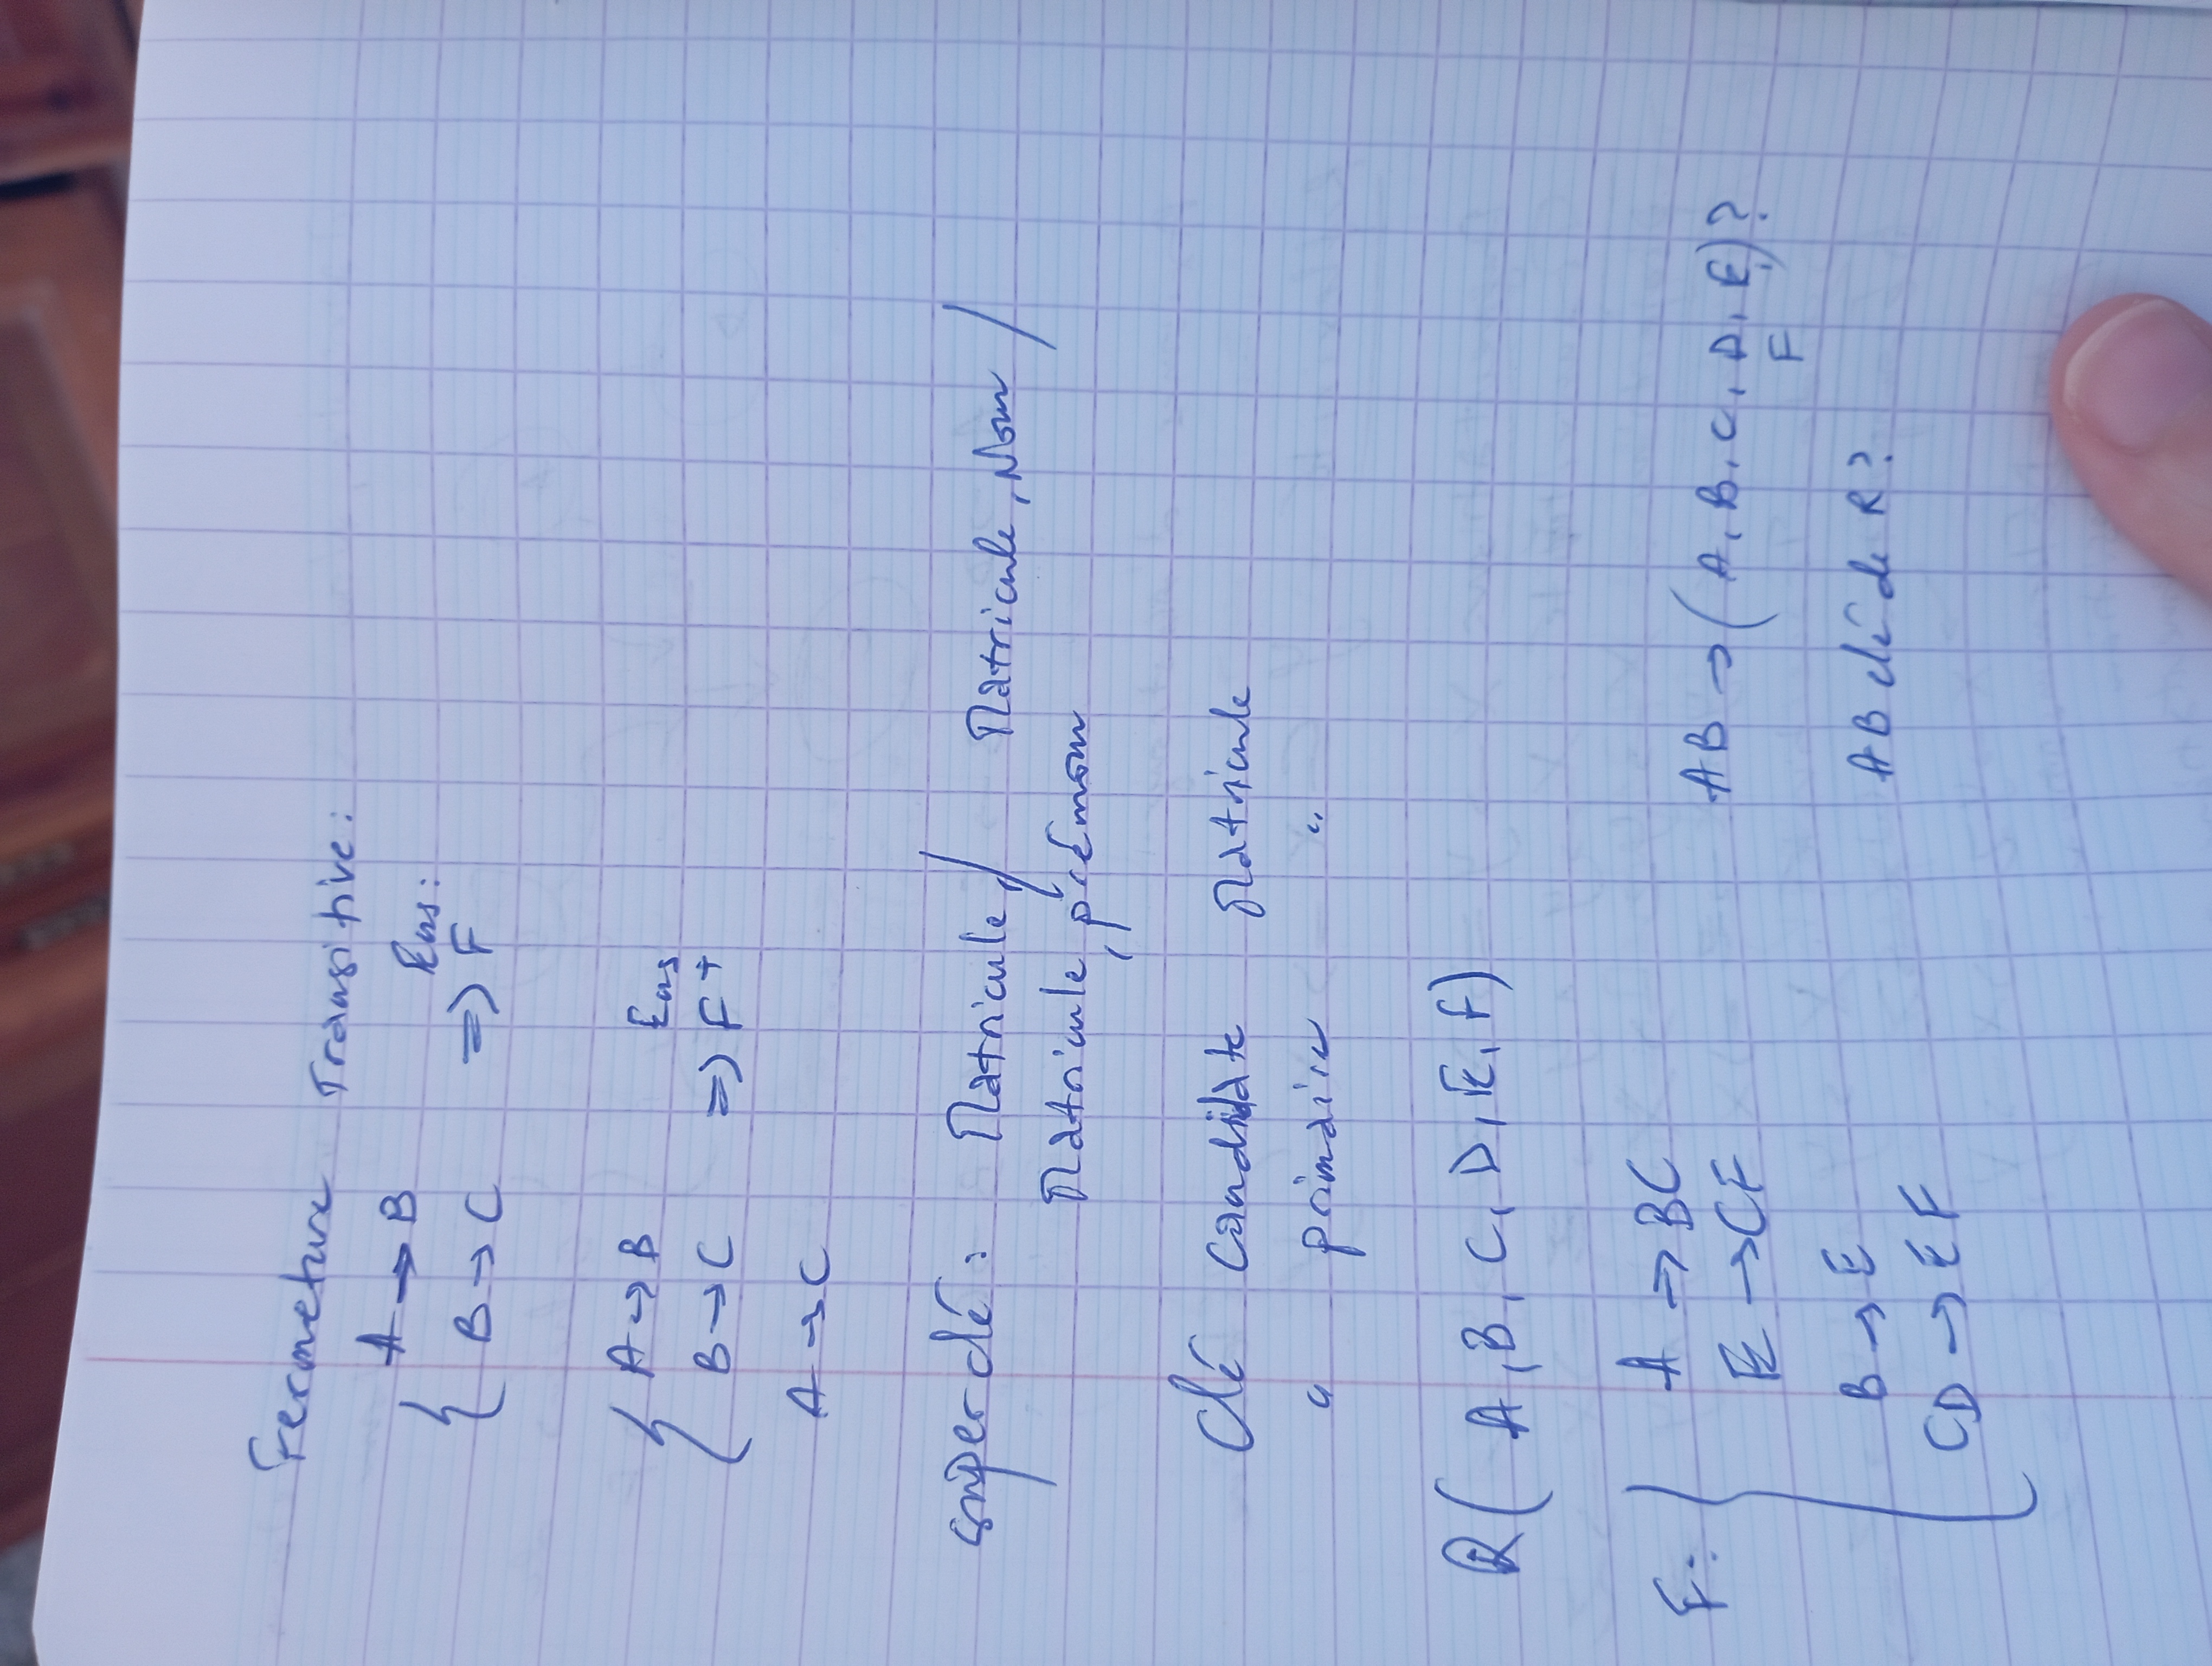 Fermeture Transitive :
A → B
Ens :
B → C ⇒ F
A → B
Ens
B → C ⇒ F+
A → C
super clé : Matricule, / Matricule, Nom /
Matricule, prénom
Clé Candidate Matricule
" primaire "
R ( A, B, C, D, E, F)
F: A → BC
E → CF
B → E
CD → EF
AB → ( A, B, C, D, E, ) ?
F
AB clé de R ?